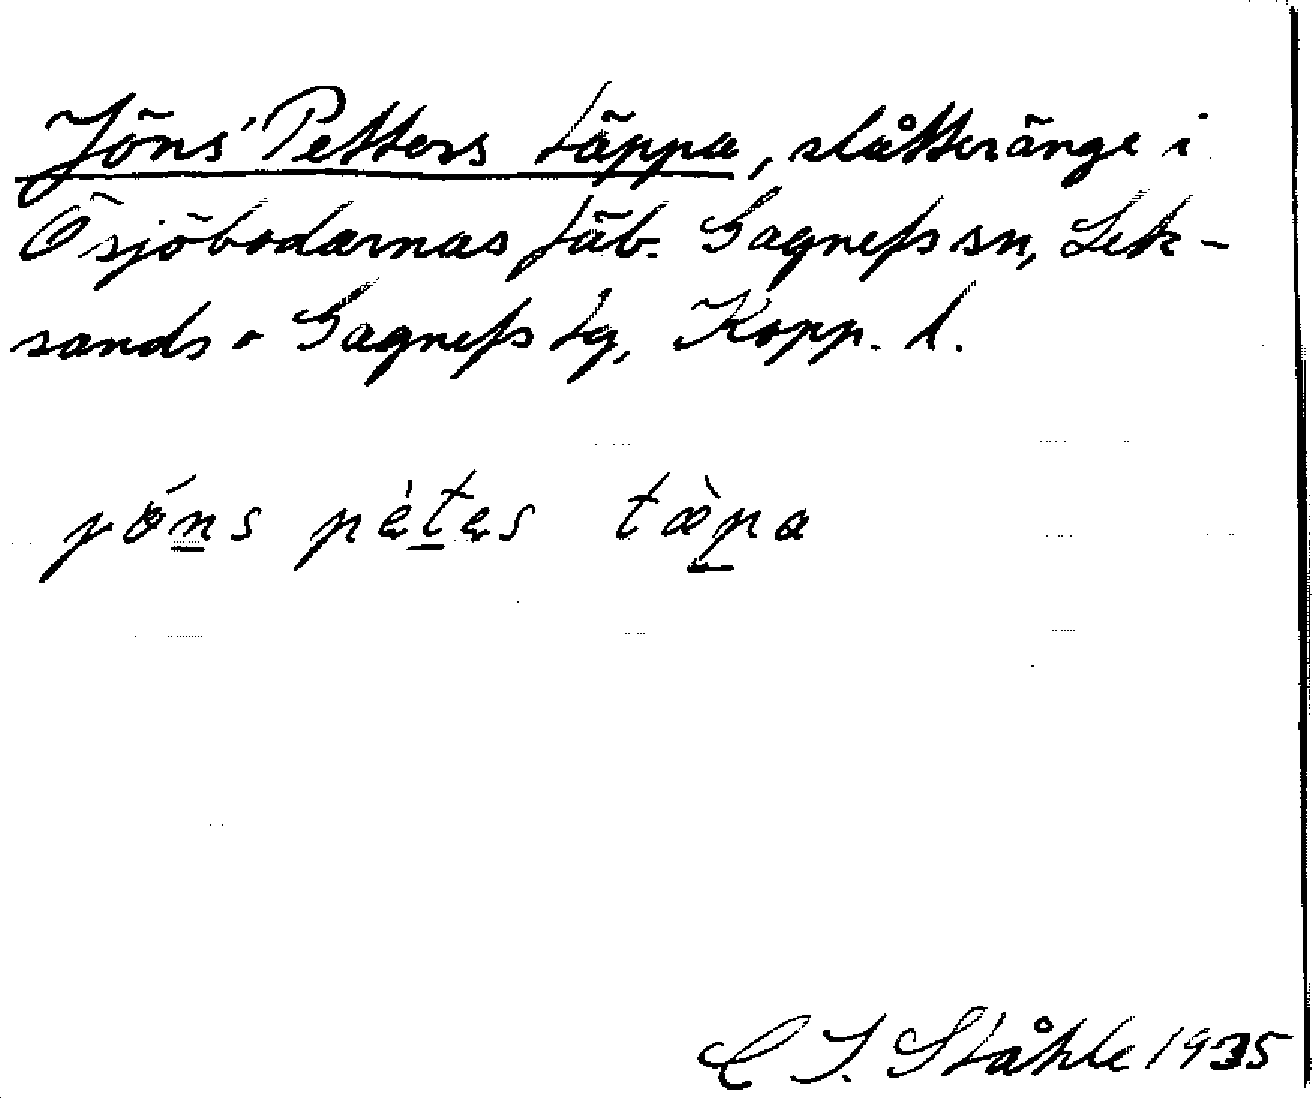 Jöns' Petters täppa, slåtteränge i
Ösjöbodarnas fäb. Gagnefs sn, Lek-
sands o Gagnefs tg, Kopp. l.
jö́ns pètes tæ̀pa
C I. Ståhle 1935